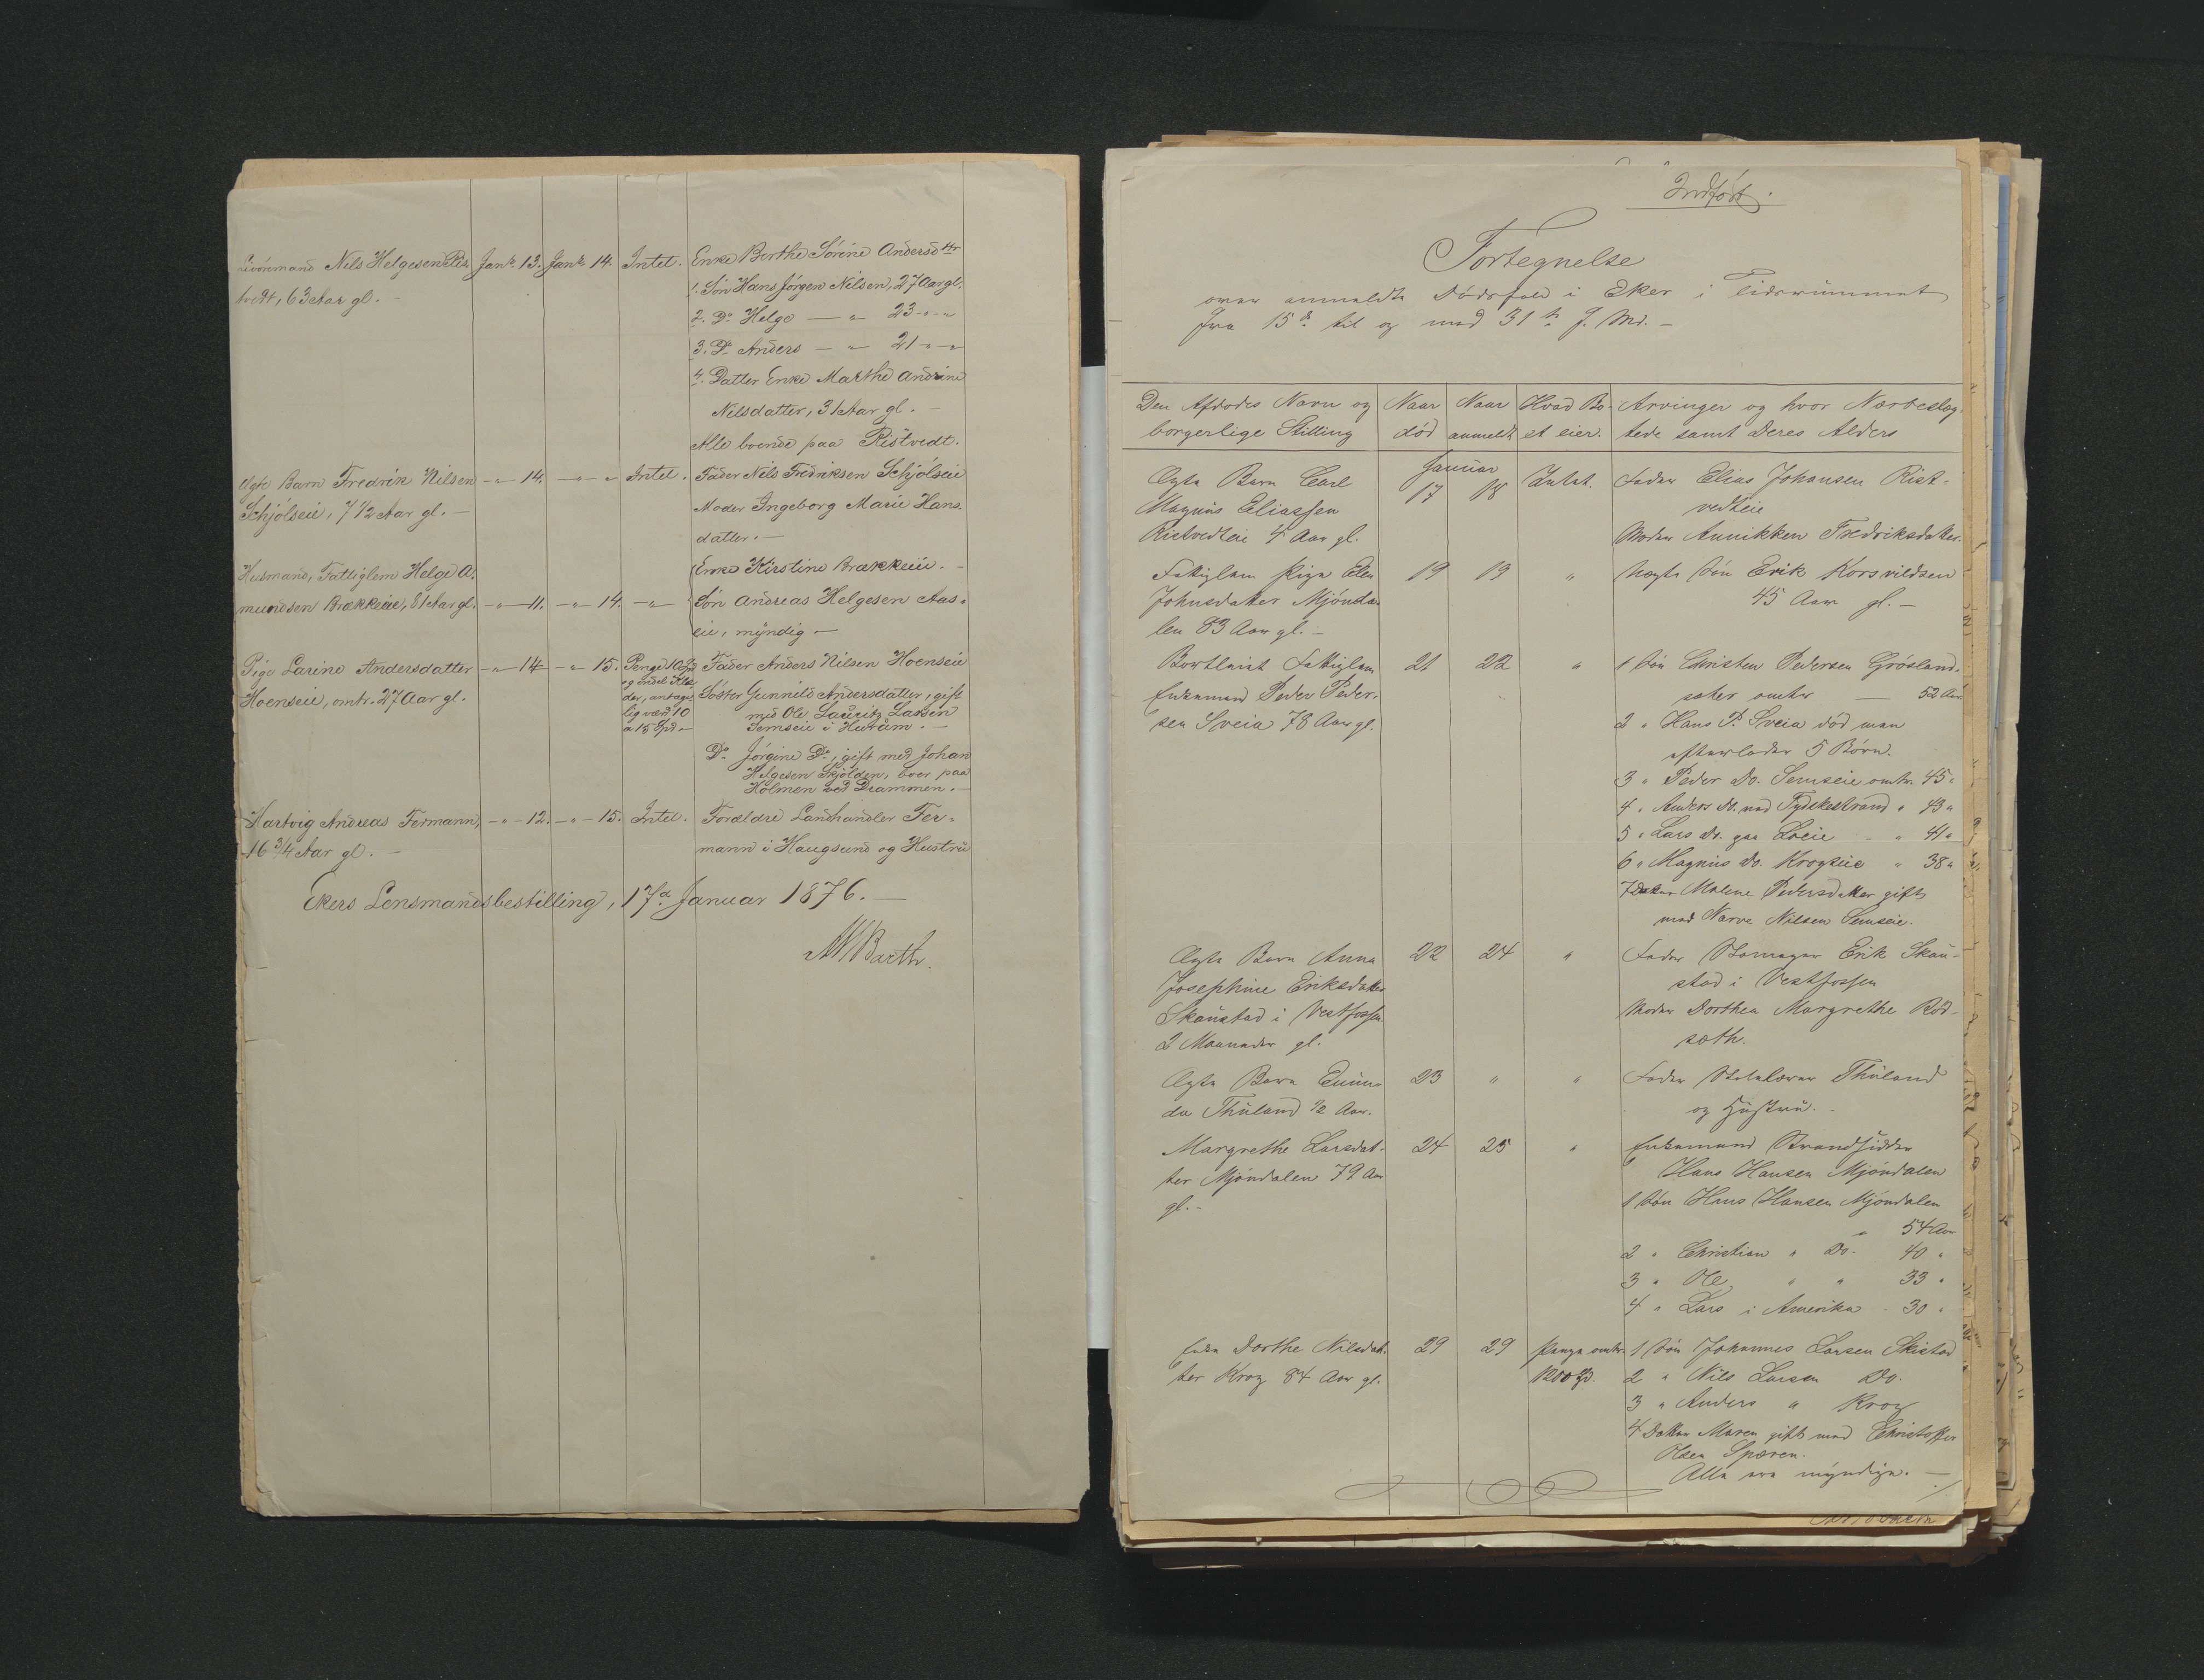 Livöremand Nils Helgesen Rist-
tvedt, 63 Aar gl. -
Janr. 13. Janr. 14. Intet.
Enke Berthe Sörine Andersdtr
1. Sön Hans Jörgen Nilsen, 27 Aar gl.
2. Do Helge — " 23 - " - "
3. Do Anders — " 21 - " - "
4. Datter Enke Marthe Andrine
Nilsdatter, 31 Aar gl. -
Alle boende paa Ristvedt.
Ægte Barn Fredrik Nilsen
Schjölseie, 7 1/2 Aar gl. -
- " - 14. - " - " Intet.
Fader Nils Fredriksen Schjölseie
Moder Ingeborg Marie Hans-
datter. -
Husmand, Fattiglem Helge A-
mundsen Brækkeeie, 81 Aar gl.
- " - 11. - " - 14. - " -
Enke Kirstine Brækkeeie. -
Sön Andreas Helgesen Aas-
eie, myndig -
Pige Larine Andersdatter
Hoenseie, omtr. 27 Aar gl.
- " - 14 - " - 15.
Penge 10 Spd
og endel Klæ-
der, antage-
lig værd 10
a 15 Spd -
Fader Anders Nilsen Hoenseie
Söster Gunnild Andersdatter, gift
med Ole Lauritz Larsen
Semseie i Hurum. -
Do Jörgine Do, gift med Johan
Helgesen Skjölden, boer paa
Holmen ved Drammen. -
Hartvig Andreas Fermann,
16 3/4 Aar gl. -
- " - 12. - " - 15. Intet.
Forældre Landhandler Fer-
mann i Haugsund og Hustru
Ekers Lensmandsbestilling, 17d Januar 1876. -
Barth.
Indført.
Fortegnelse
over anmeldte Dødsfald i Eker i Tidsrummet
fra 15de til og med 31te f. Md. -
Den Afdødes Navn og
borgerlige Stilling
Naar
død
Naar
anmeldt
Hvad Bo-
et eier.
Arvinger og hvor Nærbeslæg-
tede samt Deres Alders
Ægte Barn Carl
Magnus Eliassen
Ristvedteie 4 Aar gl.
Januar
17 18 Intet.
Fader Elias Johansen Rist-
vedteie
Moder Annikken Fredriksdatter.
Fattiglem Pige Elen
Johnsdatter Mjönda-
len 83 Aar gl. -
19 19 "
Uægte Sön Erik Korsvildsen
45 Aar gl. -
Bortleiet Fattiglem
Enkemand Peder Peder-
sen Sveia 78 Aar gl.
21 22 "
1 Sön Christen Pedersen Grösland-
sæter omtr — 52 Aar
2 " Hans P. Sveia död men
efterlader 5 Börn.
3 " Peder Do. Semseie omtr. 45 "
4 " Anders Do. ved Tydskestrand " 43 "
5 " Lars Do. paa Loeie - " 41 "
6 " Magnus Do. Krogseie " 38 "
7 Datter Malene Pedersdatter gift
med Narve Nilsen Semseie.
Ægte Barn Anna
Josephine Eriksdatter
Skaustad i Vestfossen
2 Maaneder gl.
22 24 "
Fader Skomager Erik Skau-
stad i Vestfossen
Moder Dorthea Margrethe Röd-
sæth.
Ægte Barn
Thuland 1/2 Aar.
23 " "
Fader Skolelærer Thuland
og Hustru. -
Margrethe Larsdat-
ter Mjöndalen 79 Aar
gl. -
24 25 "
Enkemand Strandsidder
Hans Hansen Mjöndalen
1 Sön Hans Hansen Mjöndalen
54 Aar
2 " Christian " Do. 40 "
3 " Ole " " 33 "
4 " Lars i Amerika - 30 "
Enke Dorthe Nilsdat-
ter Krog 84 Aar gl.
29 29
Penge omtr.
1200 Spd.
1 Sön Johannes Larsen Skistad
2 " Nils Larsen Do.
3 " Anders " Krog
4 Datter Maren gift med Christoffer
Olsen Sporen.
Alle ere myndige. -